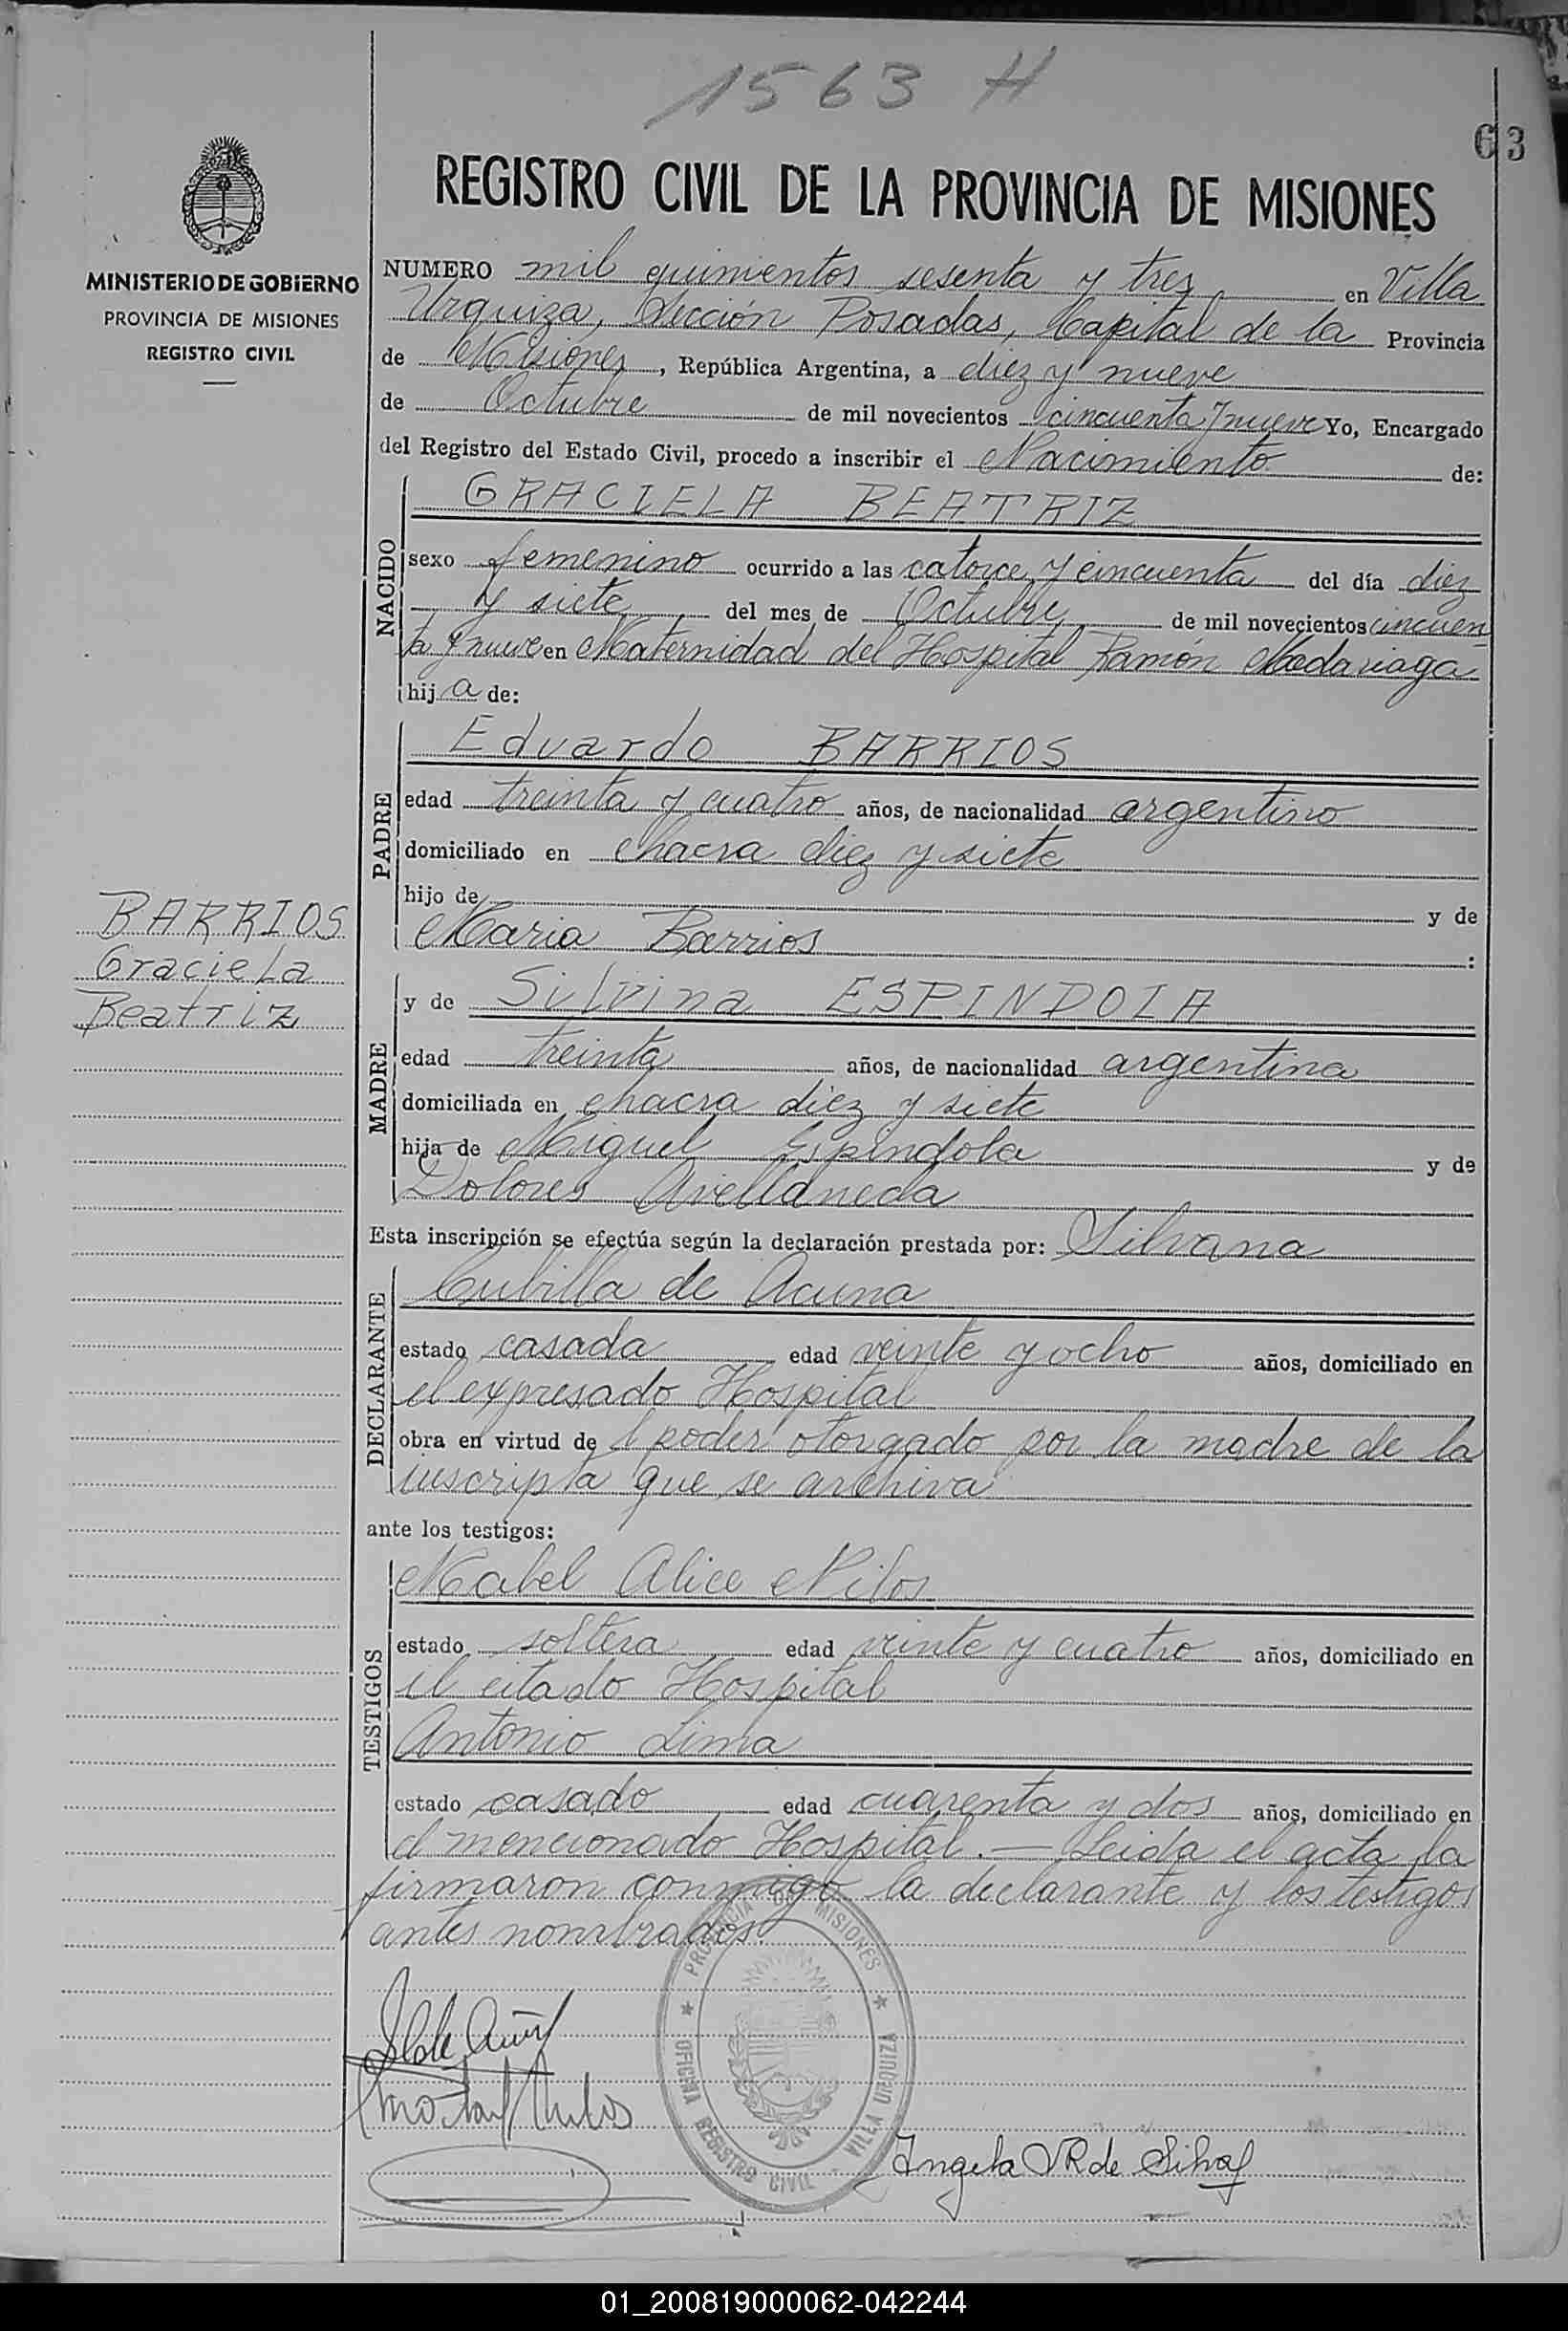 1563 H
63
REGISTRO CIVIL DE LA PROVINCIA DE MISIONES
MINISTERIO DE GOBIERNO
PROVINCIA DE MISIONES
REGISTRO CIVIL
NUMERO mil quinientos sesenta y tres en Villa
Urquiza, Sección Posadas, Capital de la Provincia
de Misiones, República Argentina, a diez y nueve
de Octubre de mil novecientos cincuenta y nueve Yo, Encargado
del Registro del Estado Civil, procedo a inscribir el Nacimiento de:
NACIDO
GRACIELA BEATRIZ
sexo femenino ocurrido a las catorce y cincuenta del día diez
y siete del mes de Octubre de mil novecientos cincuen
ta y nueve en Maternidad del Hospital Ramón Madariaga
hij a de:
PADRE
Eduardo BARRIOS
edad treinta y cuatro años, de nacionalidad argentino
domiciliado en chacra diez y siete
hijo de y de
Maria Barrios :
BARRIOS
Graciela
Beatriz
MADRE
y de Silvina ESPINDOLA
edad treinta años, de nacionalidad argentina
domiciliada en chacra diez y siete
hija de Miguel Espindola y de
Dolores Avellaneda
Esta inscripción se efectúa según la declaración prestada por: Silvana
DECLARANTE
Cubilla de Acuna
estado casada edad veinte y ocho años, domiciliado en
el expresado Hospital
obra en virtud de l poder otorgado por la madre de la
inscripta que se archiva
ante los testigos:
TESTIGOS
Mabel Alice Nilos
estado soltera edad veinte y cuatro años, domiciliado en
el citado Hospital
Antonio Lima
estado casado edad cuarenta y dos años, domiciliado en
el mencionado Hospital.— Leida el acta la
firmaron conmigo la declarante y los testigos
antes nombrados.
PROVINCIA DE MISIONES
OFICINA REGISTRO CIVIL - VILLA URQUIZA
Angela VR de Silva
01_200819000062-042244